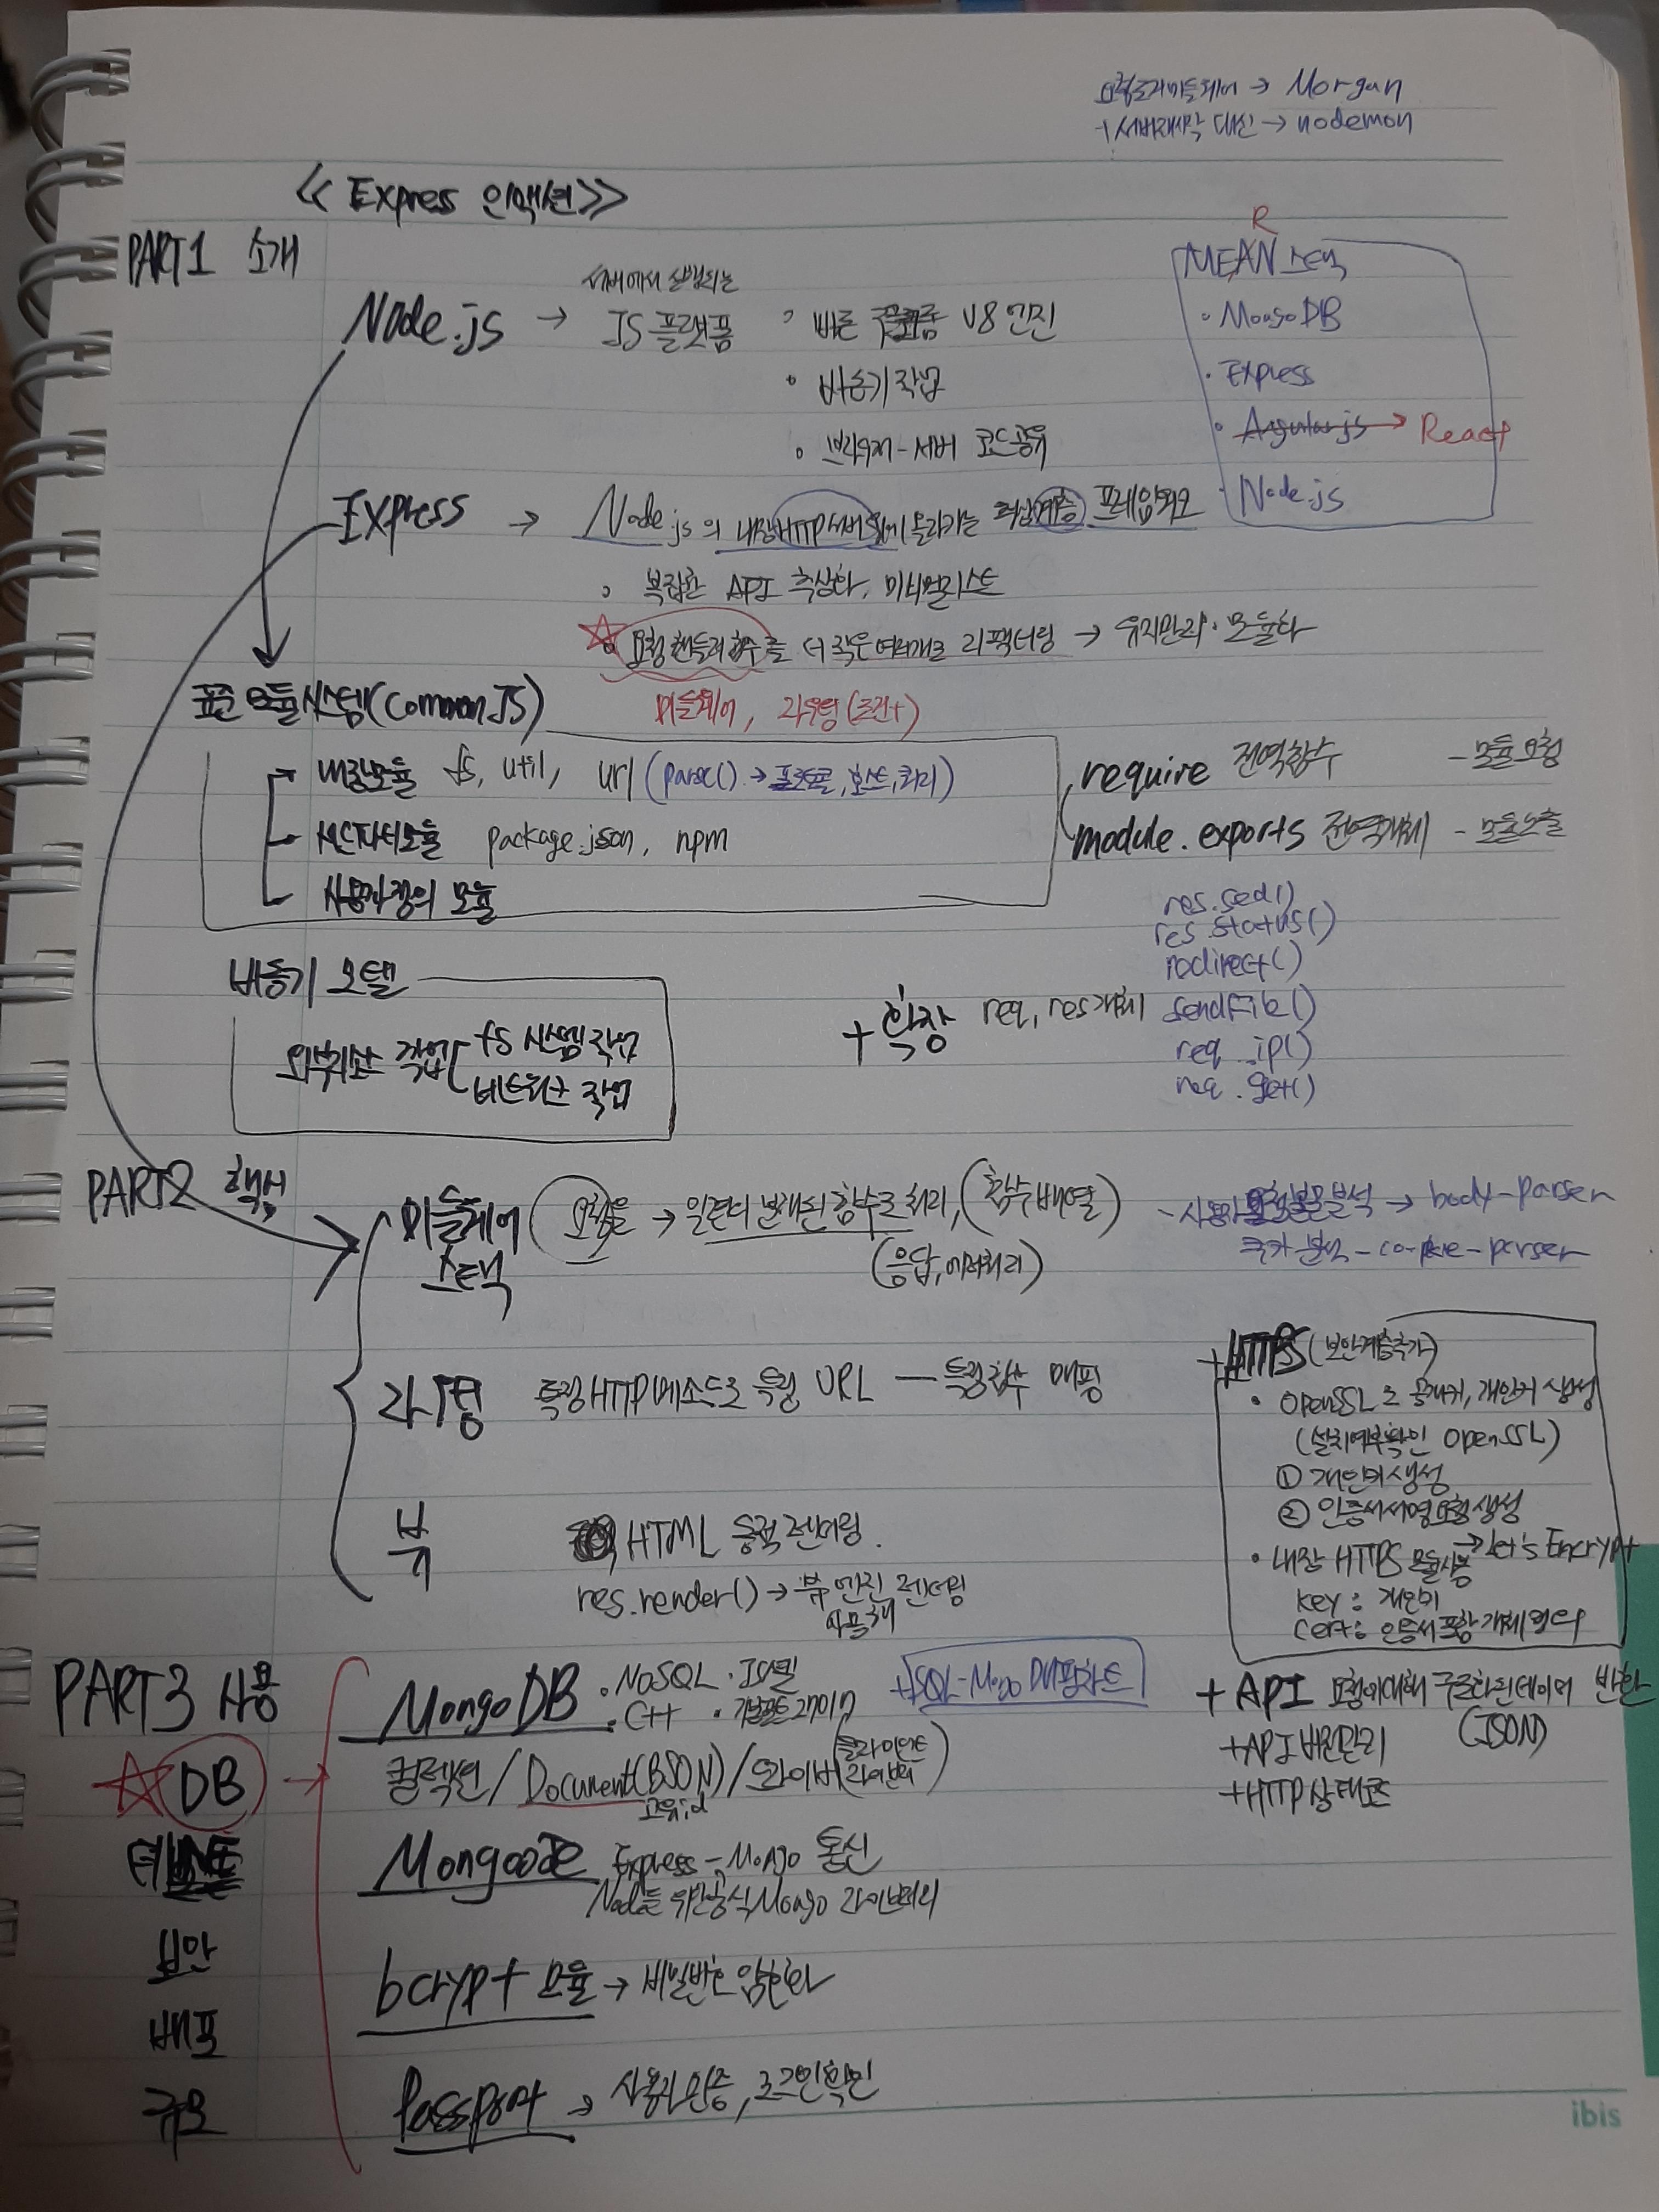 요청로거미들웨어 → Morgan
+ 서버재시작 대신 → nodemon
≪ Express 인액션≫
PART1 소개
Node.js → 서버에서 실행되는
JS 플랫폼
◦ 빠른 V8 엔진
◦ 비동기작업
◦ 브라우저-서버 코드공유
R
MEAN 스택
◦ MongoDB
· Express
◦ Angular.js → React
· Node.js
Express → Node.js의 내장HTTP서버 위에 올라가는 최상계층 프레임워크
◦ 복잡한 API 추상화, 미니멀리스트
☆ ◦ 요청 핸들러 함수를 더 작은 여러개로 리팩터링 → 유지관리·모듈화
미들웨어, 라우팅(조건+)
표준 모듈시스템(CommonJS)
내장모듈 fs, util, url (parse() → 프로토콜,호스트,쿼리)
서드파티모듈 package.json, npm
사용자정의 모듈
require 전역함수 - 모듈요청
module.exports 전역개체 - 모듈노출
비동기 모델
외부리소스 작업
fs 시스템 작업
네트워크 작업
+ 확장 req, res개체
res.sed()
res.status()
rodirect()
sendFile()
req .ip()
req .get()
PART2 핵심
미들웨어 스택
요청을 → 일련의 나열된 함수로 처리, (함수배열)
(응답,에러처리)
요청본문 분석 → body-parser
쿠키 분석 - co-okie-parser
라우팅 특정HTTP메소드로 특정 URL — 특정함수 매핑
뷰 HTML 동적 렌더링.
res.render() → 뷰 엔진 렌더링
사용해
+HTTPS(보안계층추가)
· OpenSSL로 공개키, 개인키 생성
(설치여부확인 OpenSSL)
① 개인키생성
② 인증서서명요청생성
→ Let's Encrypt
· 내장 HTTPS 모듈사용
key : 개인키
cert: 인증서 포함 개체
PART3 사용
MongoDB
· NoSQL
· C++
+SQL-Mongo 매핑차트
컬렉션 / Document(BSON) / 드라이버(클라이언트 라이브러리)
고유id
+ API 요청에대해 구조화된데이터 반환
(JSON)
+API 버전관리
+HTTP상태코드
☆ DB →
Mongoose Express - Mongo 통신
Node를 위한공식Mongo 라이브러리
테스트
보안
bcrypt 모듈 → 비밀번호 암호화
배포
Passport → 사용자인증, 로그인확인
규모
ibis